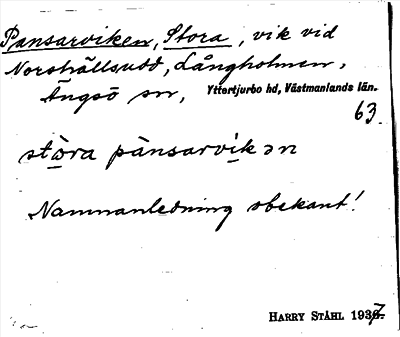 Pansarviken, Stora, vik vid
Norshällsudd, Långholmen,
Ängsö sn, Yttertjurbo hd, Västmanlands län.
63.
stora pànsarvikən
Namnanledning obekant!
HARRY STÅHL 1937.